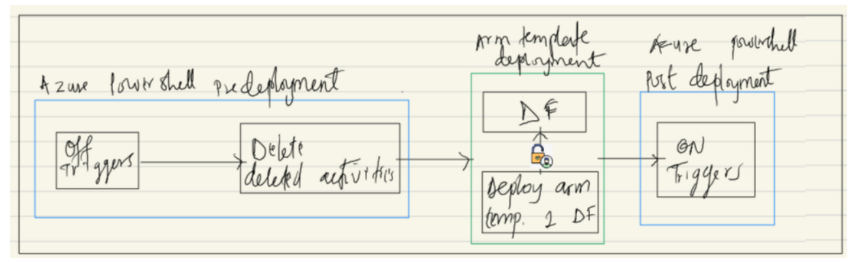 Azure Powershell predeployment
Off
Triggers
Delete
deleted activities
Arm template
deployment
DF
Deploy arm
temp. 2 DF
Azure powershell
Post deployment
ON
Triggers